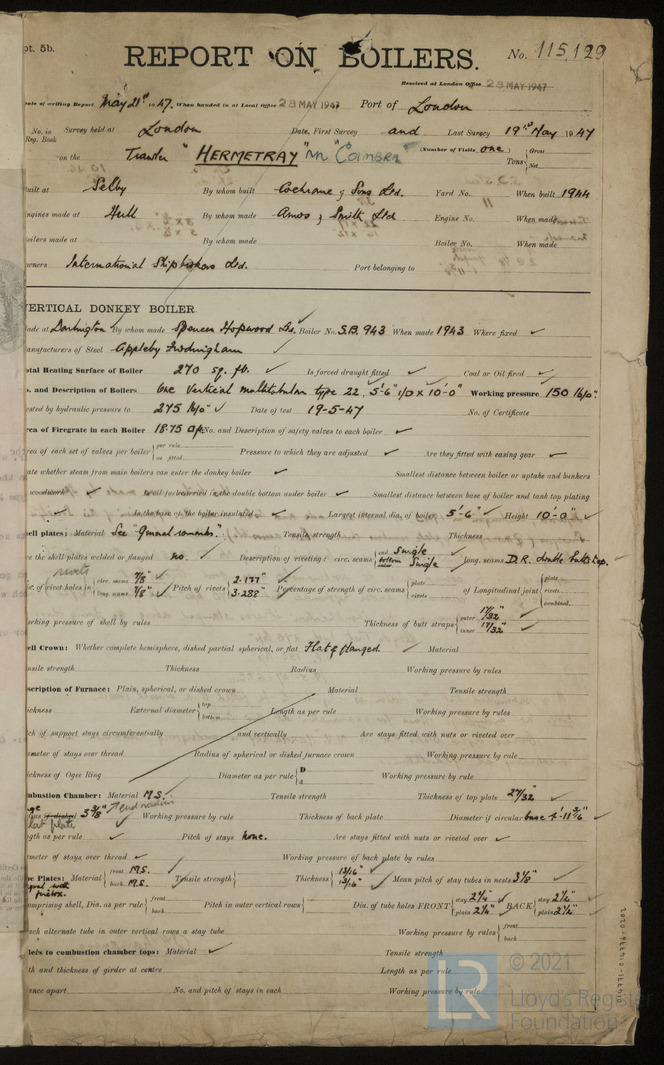 pt. 5b.
REPORT ON BOILERS.
No. 115,129
Received at London Office 28 MAY 1947
ate of writing Report May 21st 1947. When handed in at Local Office 28 MAY 1947 Port of London
No. in Reg. Book Survey held at London Date, First Survey and Last Survey 19th May 1947
on the Trawler "HERMETRAY" (Number of Visits one) Tons Gross Net
uilt at Selby By whom built Cochrane & Sons Ltd. Yard No. When built 1944
ngines made at Hull By whom made Amos & Smith Ltd Engine No. When made
oilers made at By whom made Boiler No. When made
wners International Shipbrokers Ltd. Port belonging to
VERTICAL DONKEY BOILER
ade at Darlington By whom made Spencer Hopwood Ltd. Boiler No. S.B. 943 When made 1943 Where fixed ✓
anufacturers of Steel Appleby Frodingham
otal Heating Surface of Boiler 270 sq. ft. ✓ Is forced draught fitted ✓ Coal or Oil fired ✓
o. and Description of Boilers One Vertical multitubular type 22, 5'-6" I/D x 10'-0" Working pressure 150 lb/□".
ested by hydraulic pressure to 275 lb/□" ✓ Date of test 19-5-47 No. of Certificate
rea of Firegrate in each Boiler 18.75 No. and Description of safety valves to each boiler ✓
rea of each set of valves per boiler { per rule as fitted Pressure to which they are adjusted ✓ Are they fitted with easing gear ✓
ate whether steam from main boilers can enter the donkey boiler ✓ Smallest distance between boiler or uptake and bunkers
woodwork ✓ in the double bottom under boiler ✓ Smallest distance between base of boiler and tank top plating
✓ Is the base of the boiler insulated ✓ Largest internal dia. of boiler 5'-6" ✓ Height 10'-0" ✓
hell plates: Material See "General remarks". Tensile strength Thickness
re the shell plates welded or flanged no. ✓ Description of riveting: circ. seams { end Single bottom Single long. seams D.R. double butt strap.
ia. of rivet holes in { circ. seams 7/8" long. seams 7/8" Pitch of rivets { 2.177" 3.288" Percentage of strength of circ. seams { plate rivets of Longitudinal joint { plate rivets combined
orking pressure of shell by rules Thickness of butt straps { outer 17/32" inner 17/32"
ell Crown: Whether complete hemisphere, dished partial spherical, or flat Flat & flanged ✓ Material
nsile strength Thickness Radius Working pressure by rules
scription of Furnace: Plain, spherical, or dished crown Material Tensile strength
ickness External diameter { top bottom Length as per rule Working pressure by rules
tch of support stays circumferentially and vertically Are stays fitted with nuts or riveted over
ameter of stays over thread Radius of spherical or dished furnace crown Working pressure by rule
ickness of Ogee Ring Diameter as per rule { D d Working pressure by rule
mbustion Chamber: Material M.S. ✓ Tensile strength Thickness of top plate 27/32" ✓
3 3/8" end radius Working pressure by rule Thickness of back plate Diameter if circular base 4'-11 7/16" ✓
flat plate
ngth as per rule ✓ Pitch of stays none. Are stays fitted with nuts or riveted over ✓
ameter of stays over thread ✓ Working pressure of back plate by rules
be Plates: Material { front M.S. back M.S. Tensile strength { Thickness { 13/16" 13/16" Mean pitch of stay tubes in nests 3 1/8" ✓
omprising shell, Dia. as per rule { front back Pitch in outer vertical rows { Dia. of tube holes FRONT { stay 2 1/4" plain 2 1/4" BACK { stay 2 1/2" plain 2 1/2"
ach alternate tube in outer vertical rows a stay tube Working pressure by rules { front back
ders to combustion chamber tops: Material ✓ Tensile strength
th and thickness of girder at centre Length as per rule
ance apart No. and pitch of stays in each Working pressure by rule
© 2021
LR
Lloyd's Register
Foundation